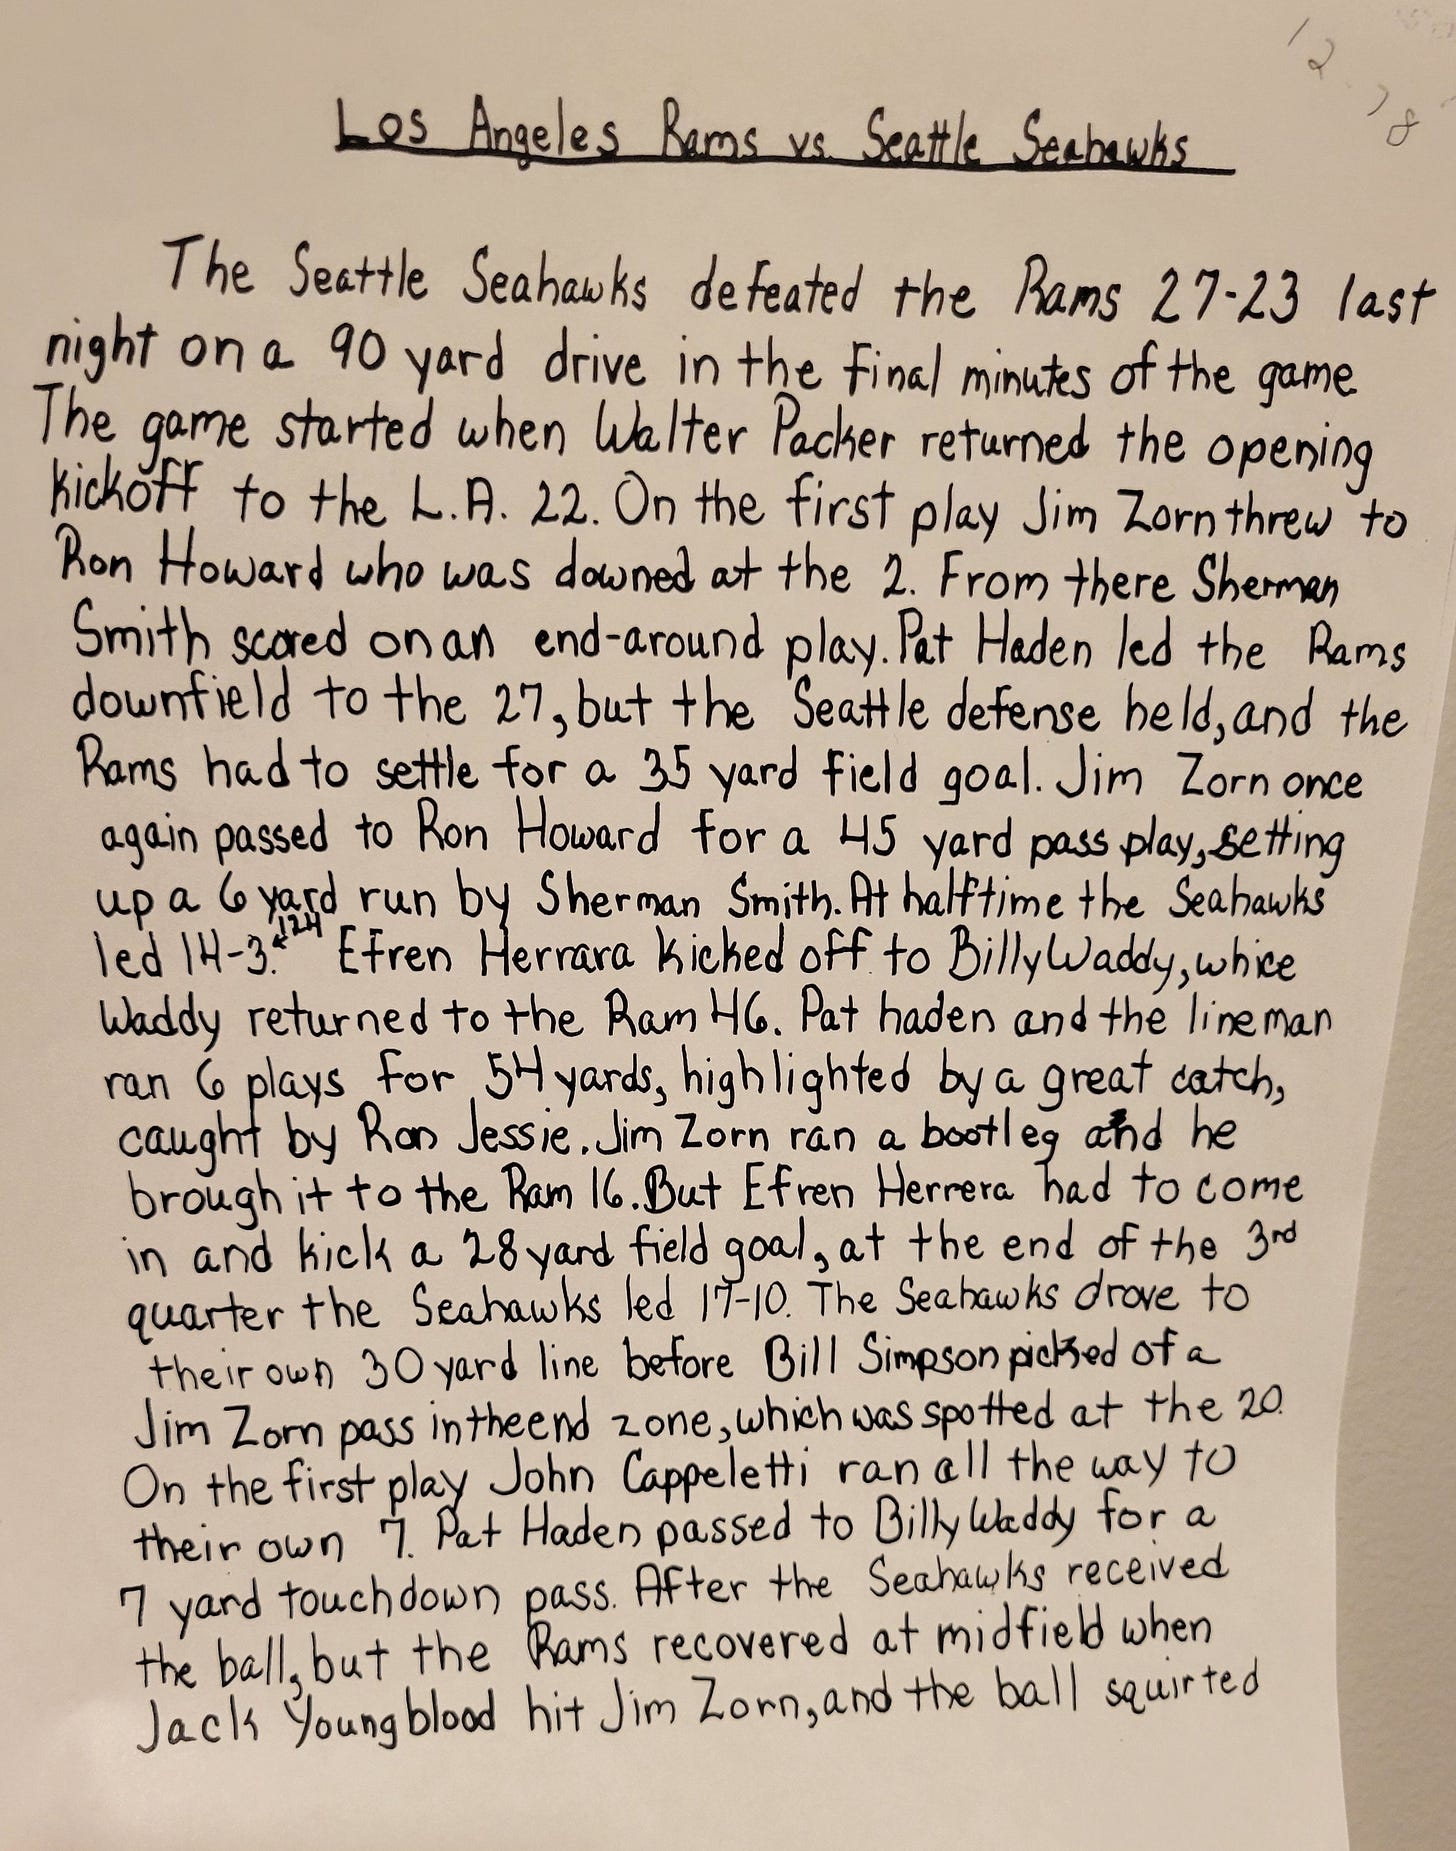 12
, 8
Los Angeles Rams vs. Seattle Seahawks
The Seattle Seahawks defeated the Rams 27-23 last
night on a 90 yard drive in the final minutes of the game
The game started when Walter Packer returned the opening
kickoff to the L.A. 22. On the first play Jim Zorn threw to
Ron Howard who was downed at the 2. From there Sherman
Smith scored on an end-around play. Pat Haden led the Rams
downfield to the 27, but the Seattle defense held, and the
Rams had to settle for a 35 yard field goal. Jim Zorn once
again passed to Ron Howard for a 45 yard pass play, setting
up a 6 yard run by Sherman Smith. At halftime the Seahawks
led 14-3. 124 Efren Herrara kicked off to Billy Waddy, whice
Waddy returned to the Ram 46. Pat haden and the lineman
ran 6 plays for 54 yards, highlighted by a great catch,
caught by Ron Jessie. Jim Zorn ran a bootleg and he
brough it to the Ram 16. But Efren Herrera had to come
in and kick a 28 yard field goal, at the end of the 3rd
quarter the Seahawks led 17-10. The Seahawks drove to
their own 30 yard line before Bill Simpson picked of a
Jim Zorn pass in the end zone, which was spotted at the 20.
On the first play John Cappeletti ran all the way to
their own 7. Pat Haden passed to Billy Waddy for a
7 yard touchdown pass. After the Seahawks received
the ball, but the Rams recovered at midfield when
Jack Youngblood hit Jim Zorn, and the ball squirted